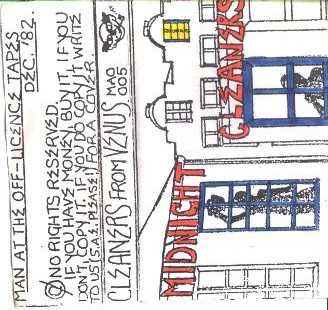 MAN AT THE OFF-LICENCE TAPES
DEC. '82.
NO RIGHTS RESERVED.
IF YOU HAVE MONEY, BUY IT, IF YOU
DON'T, COPY IT. IF YOU DO COPY IT WRITE
TO US (S.A.E. PLEASE!) FOR A COVER
CLEANERS FROM VENUS
MAO
005
MIDNIGHT
CLEANERS